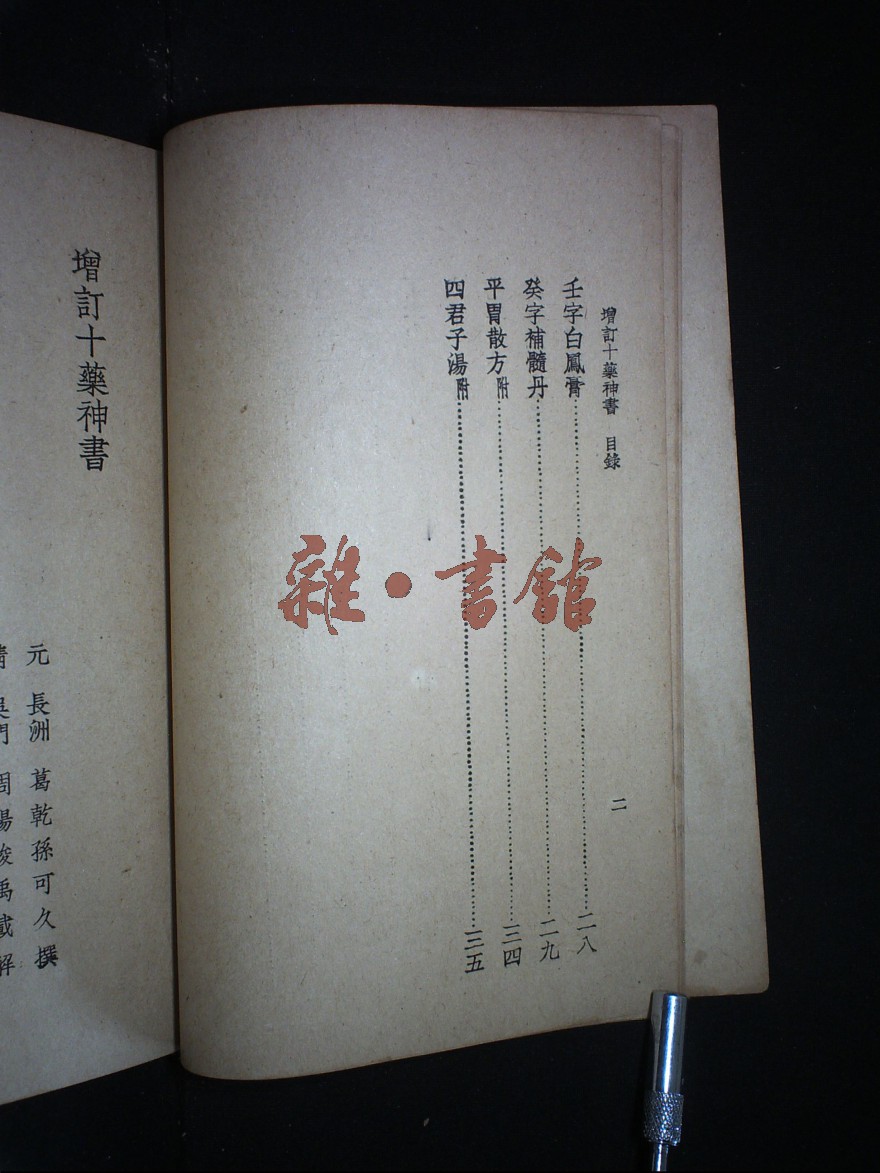 增訂十藥神書　目錄
二
壬字白鳳膏……二八
癸字補髓丹……二九
平胃散方附……三四
四君子湯附……三五
雜·書館
增訂十藥神書
元　長洲　葛乾孫可久撰
清　吳門　周揚俊禹載解